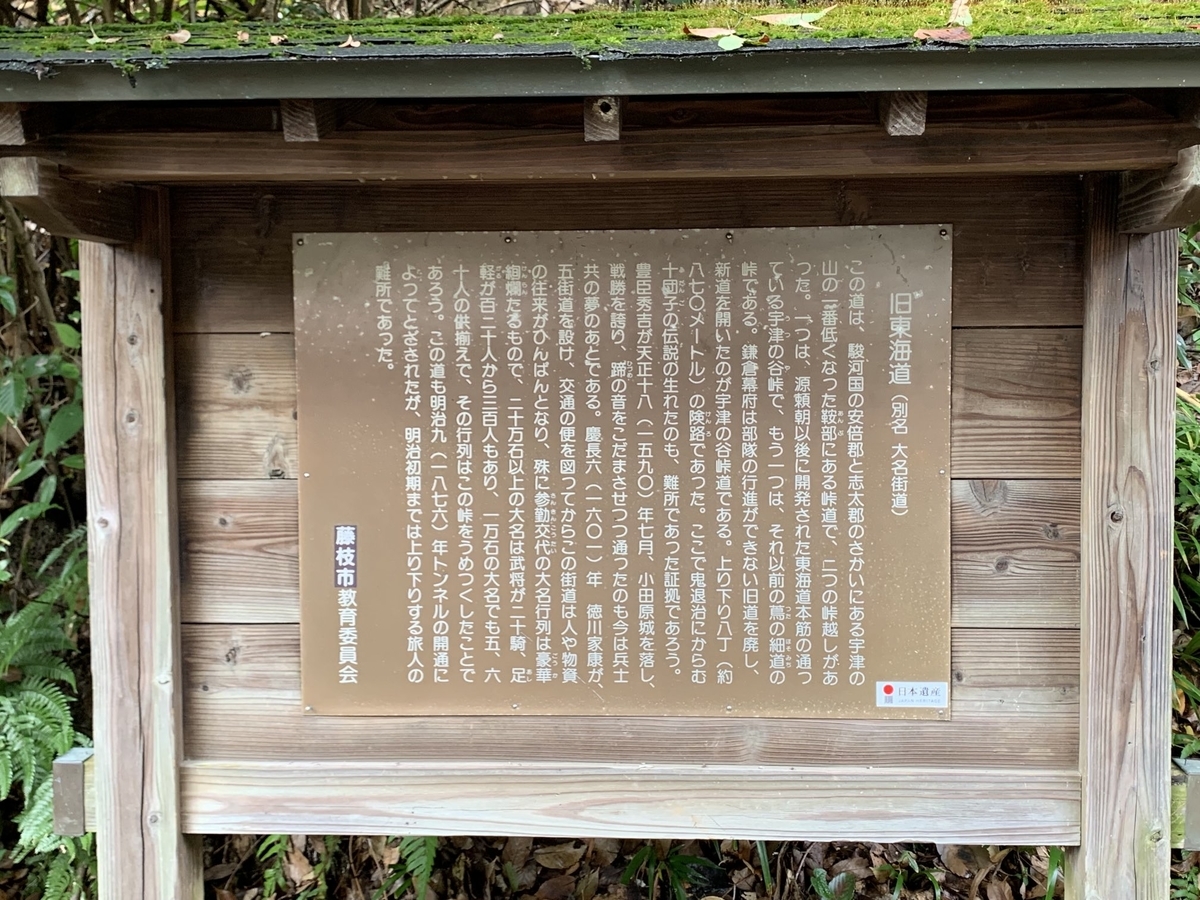 旧東海道（別名 大名街道）
この道は、駿河国の安倍郡と志太郡のさかいにある宇津の
山の一番低くなった鞍部にある峠道で、二つの峠越しがあ
った。一つは、源頼朝以後に開発された東海道本筋の通っ
ている宇津の谷峠で、もう一つは、それ以前の蔦の細道の
峠である。鎌倉幕府は部隊の行進ができない旧道を廃し、
新道を開いたのが宇津の谷峠道である。上り下り八丁（約
八七〇メートル）の険路であった。ここで鬼退治にからむ
十団子の伝説の生れたのも、難所であった証拠であろう。
豊臣秀吉が天正十八（一五九〇）年七月、小田原城を落し、
戦勝を誇り、蹄の音をこだまさせつつ通ったのも今は兵士
共の夢のあとである。慶長六（一六〇一）年 徳川家康が、
五街道を設け、交通の便を図ってからこの街道は人や物資
の往来がひんぱんとなり、殊に参勤交代の大名行列は豪華
絢爛たるもので、二十万石以上の大名は武将が二十騎、足
軽が百二十人から三百人もあり、一万石の大名でも五、六
十人の供揃えで、その行列はこの峠をうめつくしたことで
あろう。この道も明治九（一八七六）年トンネルの開通に
よってとざされたが、明治初期までは上り下りする旅人の
難所であった。
藤枝市教育委員会
日本遺産